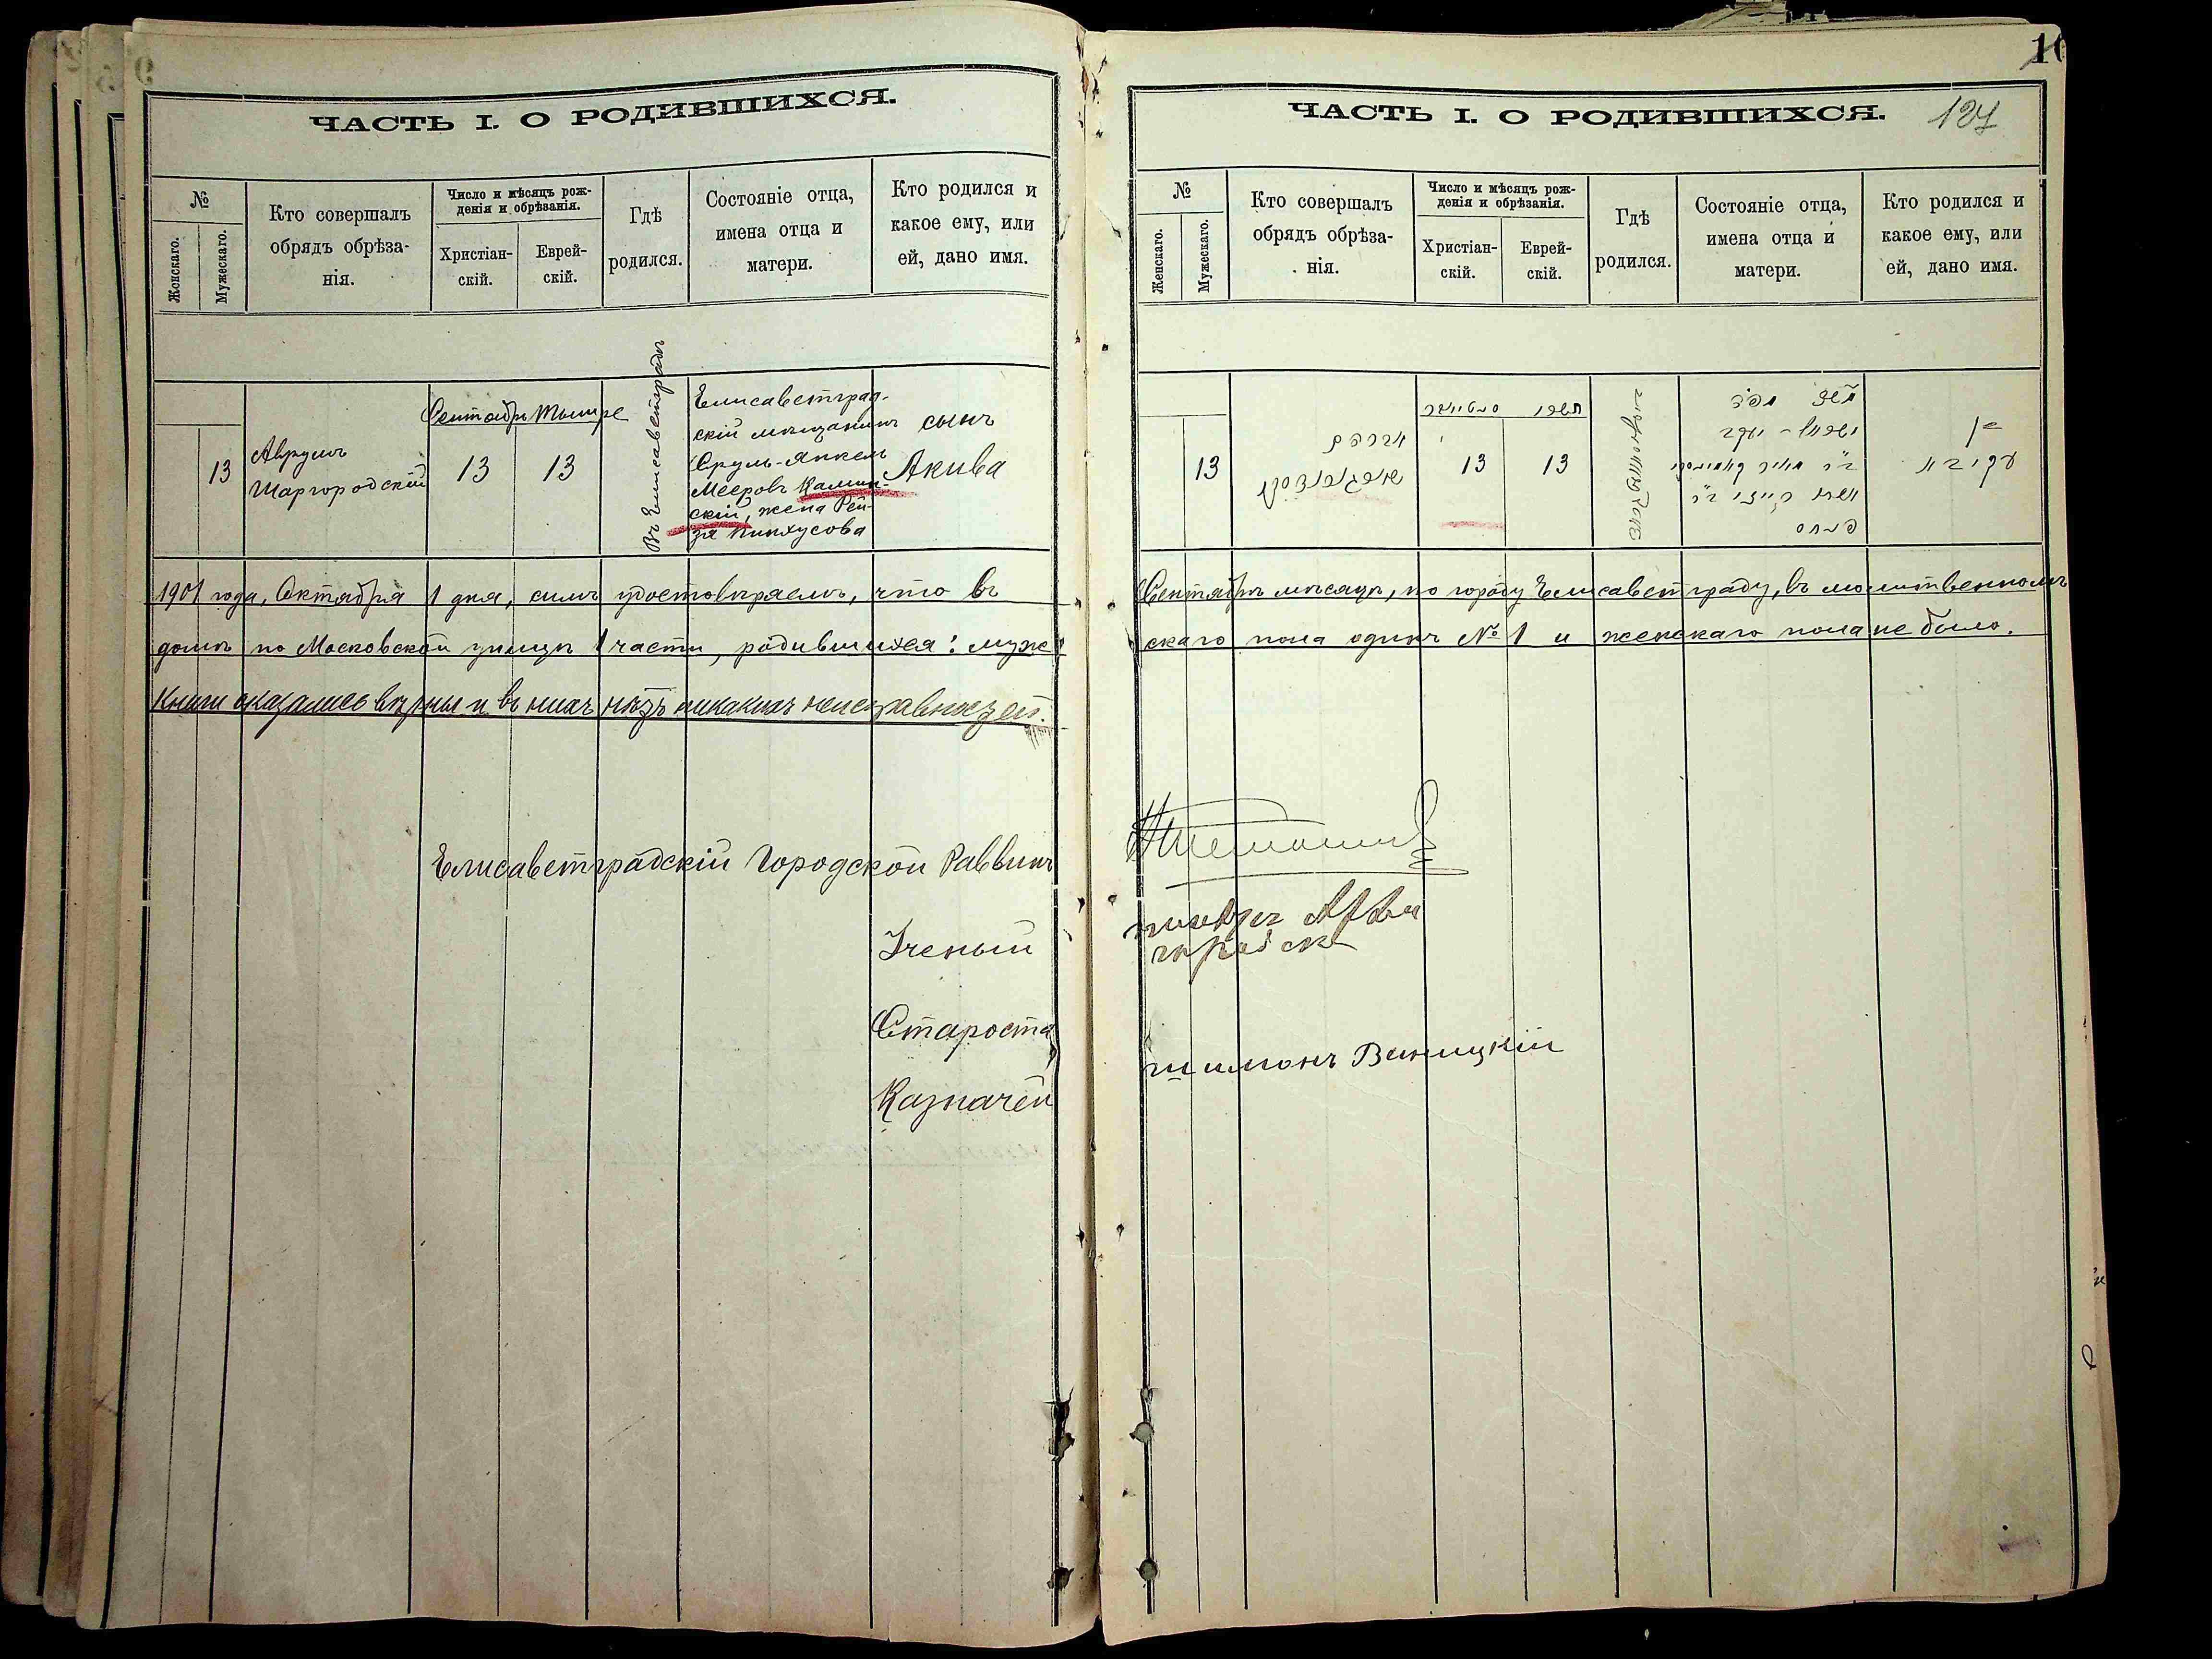 ЧАСТЬ I. О РОДИВШИХСЯ.
№
Женскаго.
Мужескаго.
Кто совершалъ
обрядъ обрѣза-
нія.
Число и мѣсяцъ рож-
денія и обрѣзанія.
Христіан-
скій.
Еврей-
скій.
Гдѣ
родился.
Состояніе отца,
имена отца и
матери.
Кто родился и
какое ему, или
ей, дано имя.
13
Аврумъ
Шаргородскій
Сентябрь Тышре
13
13
Въ Елисаветградѣ
Елисаветград-
скій мѣщанинъ
Сруль-Янкель
Мееровъ Камин-
скій, жена Рей-
зя Пинхусова
сынъ
Акива
1901 года, Октября 1 дня, симъ удостовѣряемъ, что въ
домѣ по Московской улицѣ 1 части, родившихся: муже
Книги оказались вѣрны и въ нихъ нѣтъ никакихъ неисправностей.
Елисаветградскій Городской Раввинъ
Ученый
Староста
Казначей
10
127
ЧАСТЬ I. О РОДИВШИХСЯ.
№
Женскаго.
Мужескаго.
Кто совершалъ
обрядъ обрѣза-
нія.
Число и мѣсяцъ рож-
денія и обрѣзанія.
Христіан-
скій.
Еврей-
скій.
Гдѣ
родился.
Состояніе отца,
имена отца и
матери.
Кто родился и
какое ему, или
ей, дано имя.
13
אברהם
13
13
תשרי
בן
עקיבא
Сентябрь мѣсяцъ, по городу Елисаветграду, въ молитвенномъ
скаго пола одинъ № 1 и женскаго пола не было.
шимонъ Виницкій